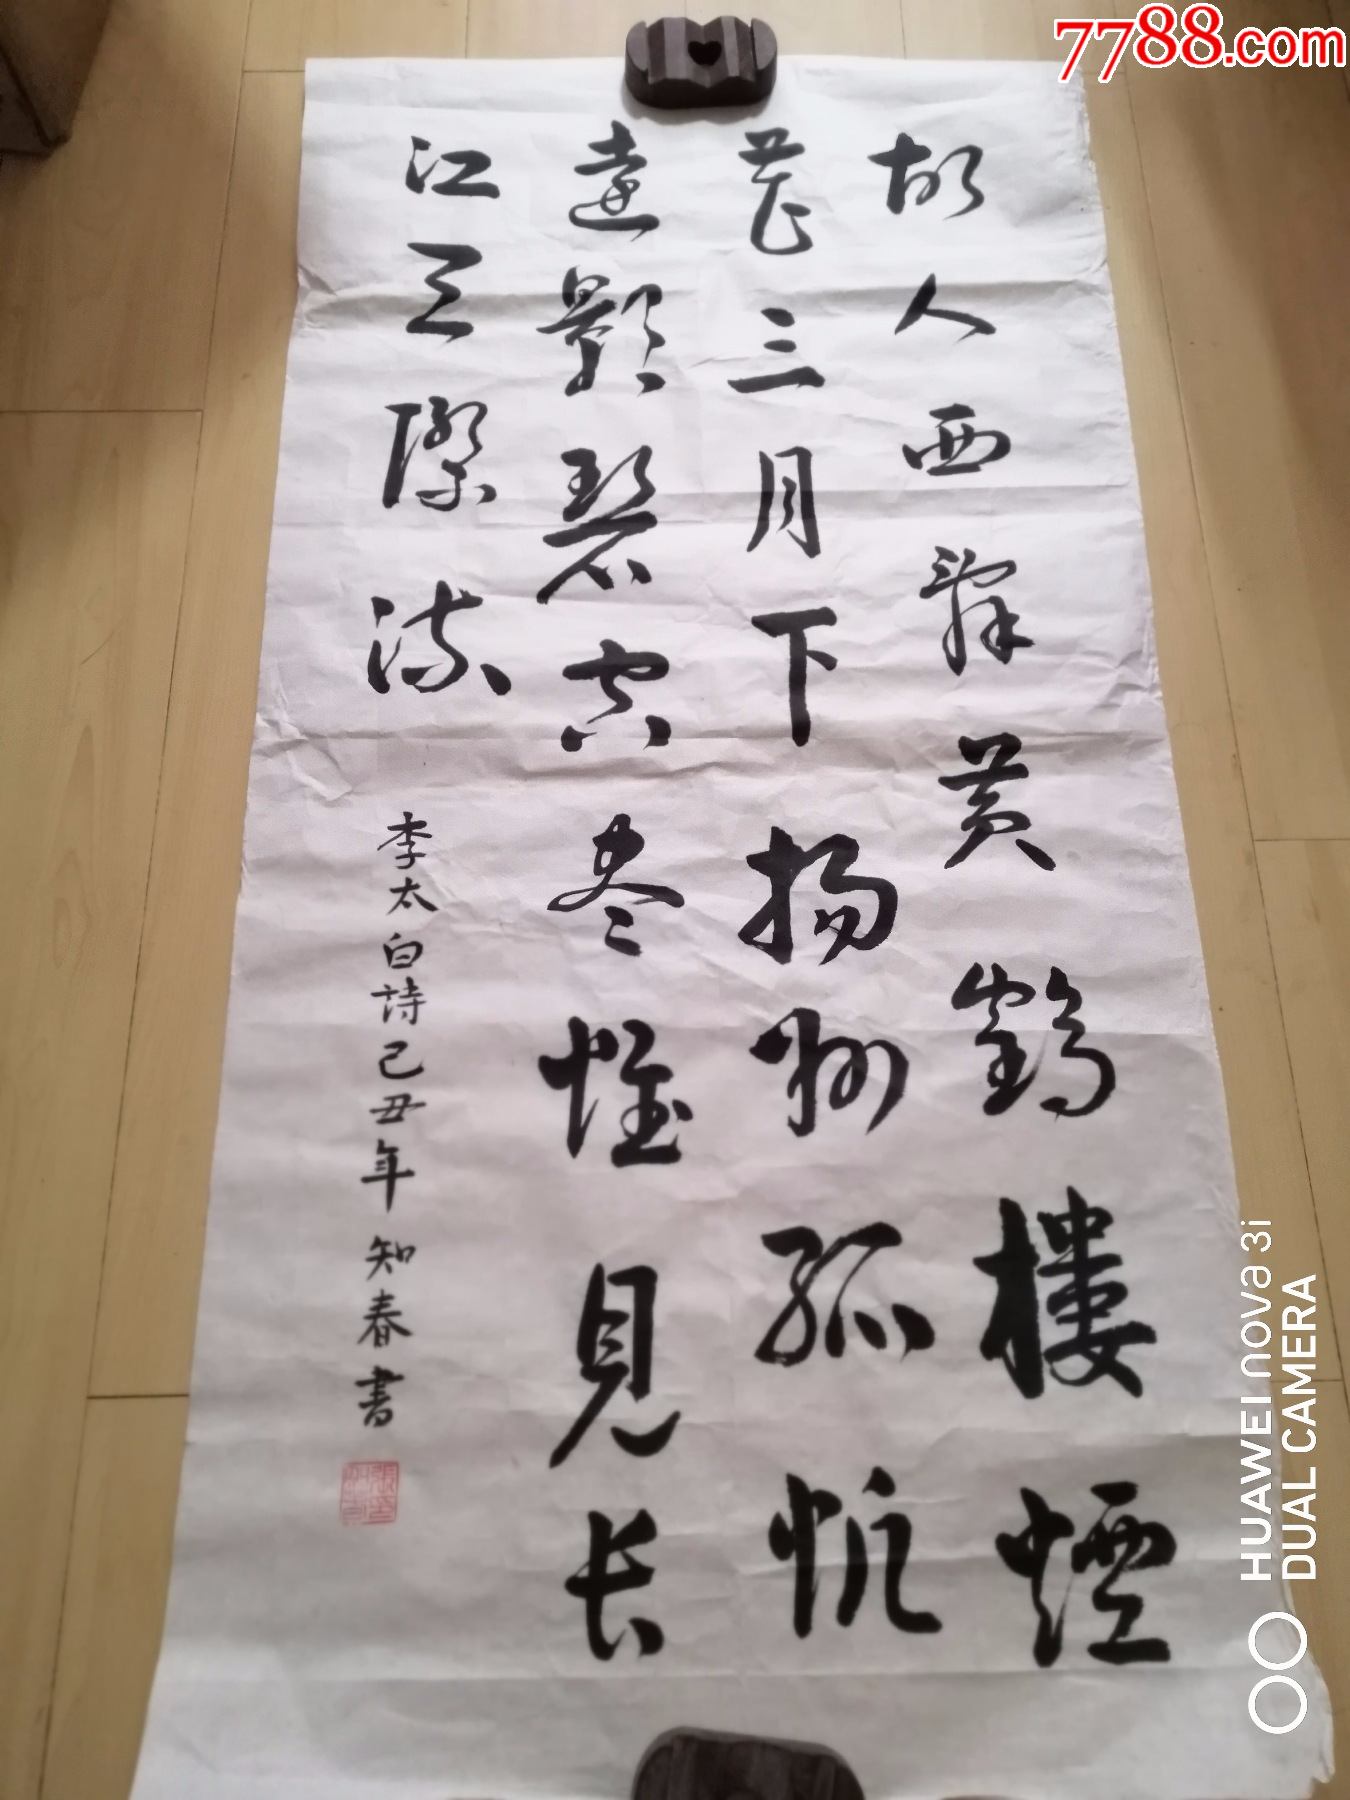 故人西辞黄鹤樓煙
花三月下揚州孤帆
遠影碧空尽惟見长
江天際流
李太白詩己丑年知春書
7788.com
HUAWEI nova 3i
DUAL CAMERA